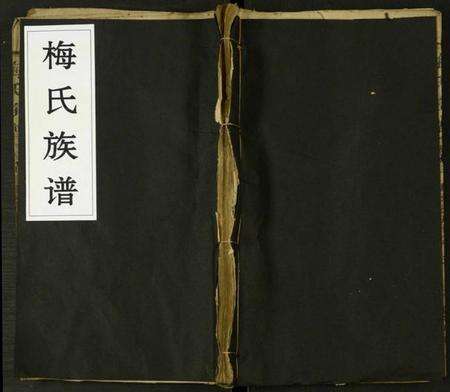 梅氏族谱